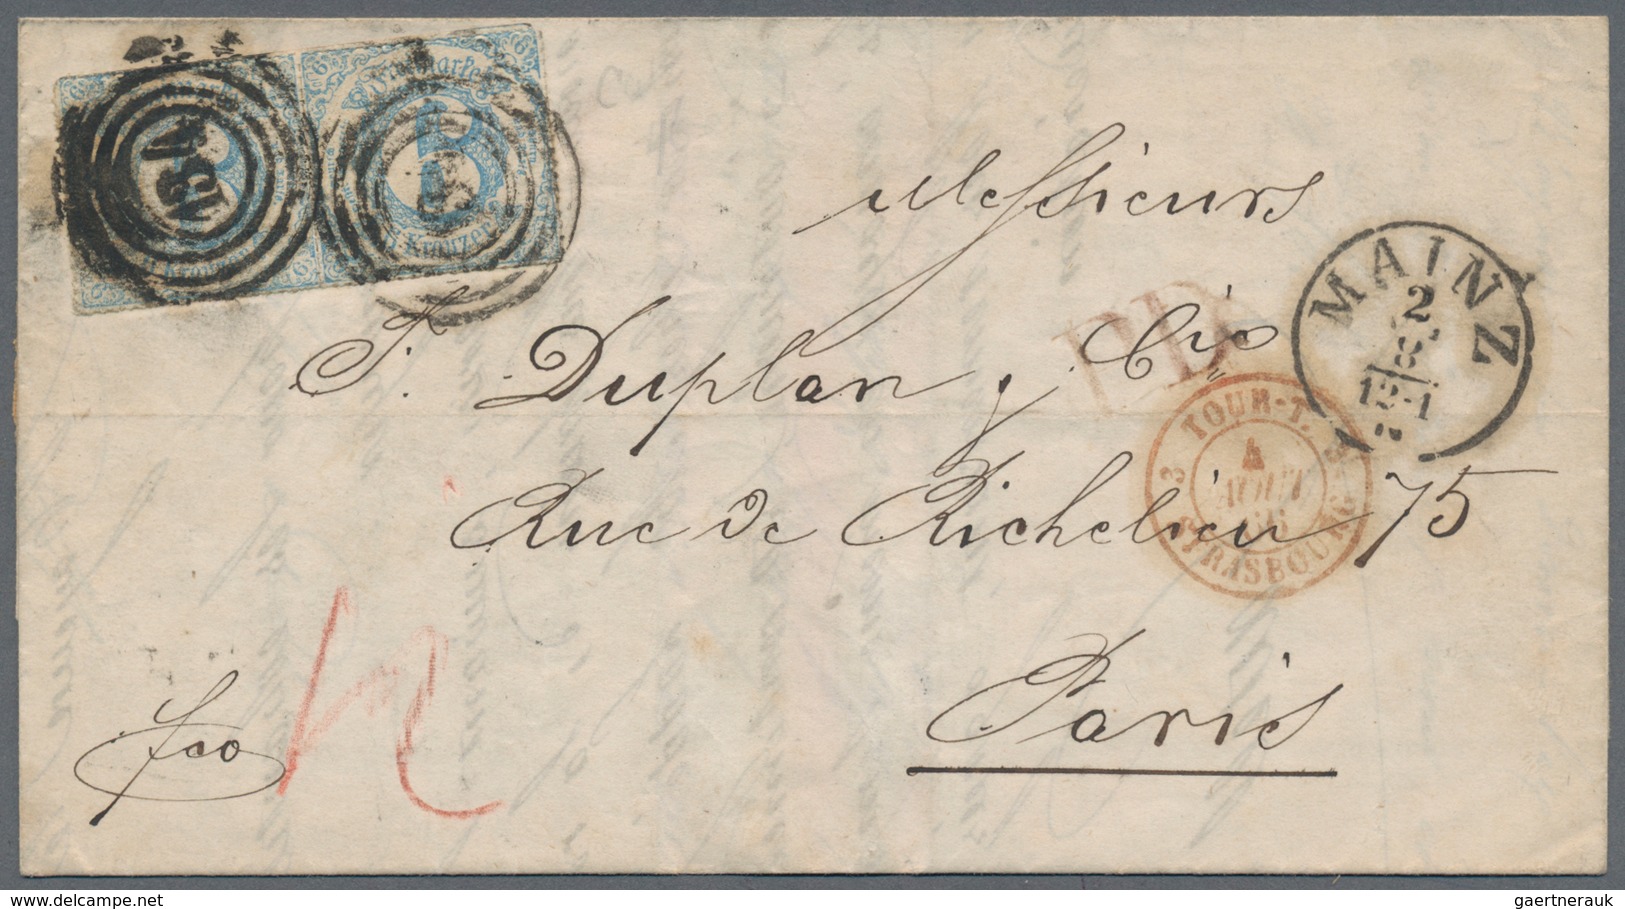 Freimarke
Kreuzer
134
Messieurs
F. Duplan & Cie
Rue de Richelieu 75
Paris
fco
PD
MAINZ
2
8
12-1
3 TOUR-T.
4
AOUT
66
STRASBOURG
gaertnerauk